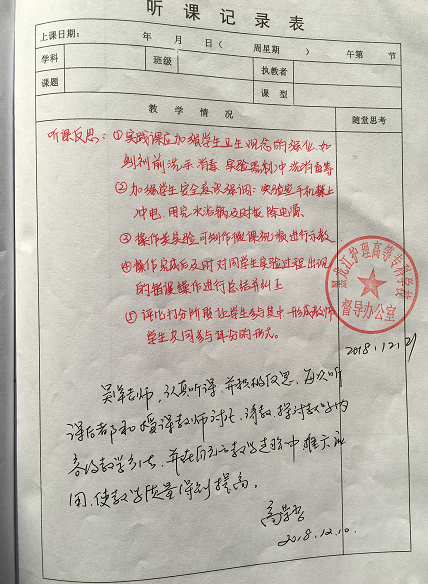 听课记录表
上课日期： 年 月 日（ 周星期 ） 午第 节
学科 班级 执教者
课题 课型
教学情况 随堂思考
听课反思：①实践课应加强学生卫生观念的强化，如
剖前洗示消毒、实验器制冲洗消毒等
②加强学生安全意识强调：实验室手机禁止
冲电，用完水浴锅及时拔除电源、
③操作类实验可制作微课视频进行示教
④操作完成后及时对同学生实验过程出现
的错误操作进行总结并纠正
⑤评化打分阶段让学生参与其中，形成教师
学生共同参与互动的形式。
黑龙江护理高等专科学校
督导办公室
2018.12.21
吴学老师，认真听课，并积极反思，每次听
课后都和授课教师讨论、请教，探讨教学内
容的教学方法，并在自己的教学过程中推广应
用，使教学质量得到提高。
2018.12.10.